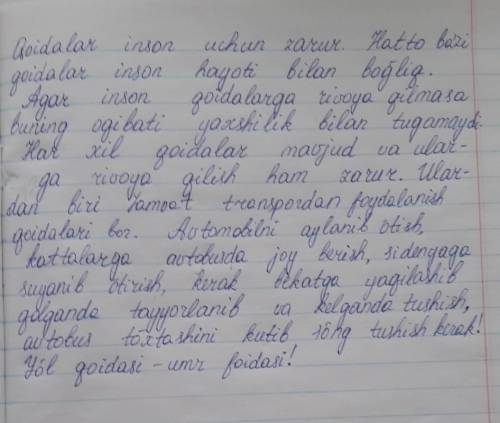 Qoidalar inson uchun zarur. Hatto ba'zi
qoidalar inson hayoti bilan bog'liq.
Agar inson qoidalarga rivoya qilmasa
buning oqibati yaxshilik bilan tugamaydi.
Har xil qoidalar mavjud va ular-
ga rivoya qilish ham zarur. Ular-
dan biri Jamoat transpordan foydalanish
qoidalari bor. Avtomobilni aylanib ótish,
kattalarga avtobusda joy berish, sidenyaga
suyanib ótirish, kerak bekatga yaqilashib
qolganda tayyorlanib va kelganda tushish,
avtobus tóxtashini kutib sóng tushish kerak!
Yól qoidasi - umr foidasi!